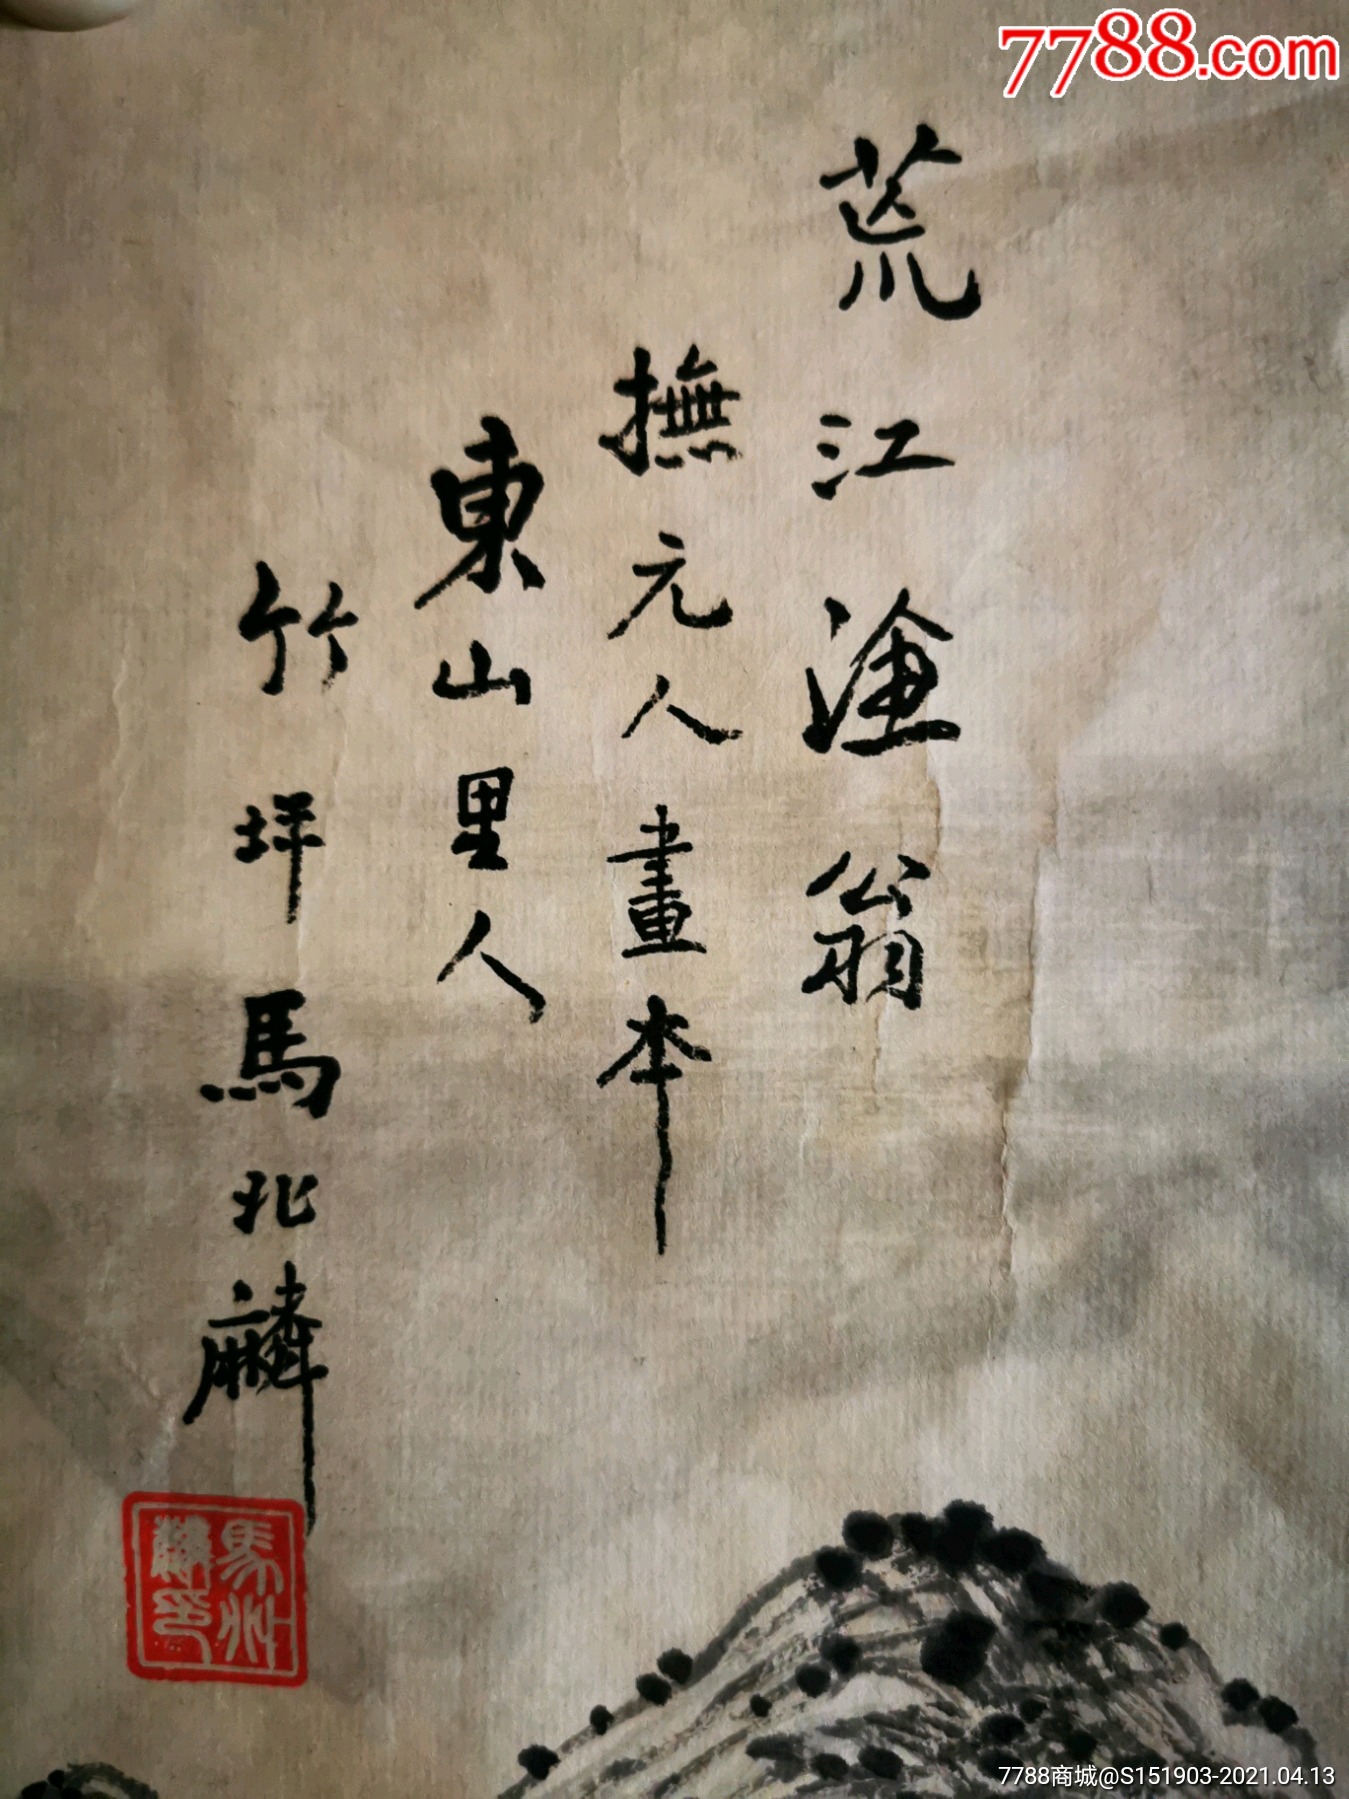 7788.com
荒江渔翁
撫元人畫本
東山里人
竹坪馬北麟
馬北
麟印
7788商城@S151903-2021.04.13